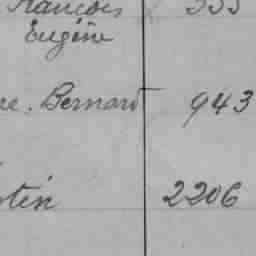 François 333
Eugène
e. Bernard 943
tin 2206